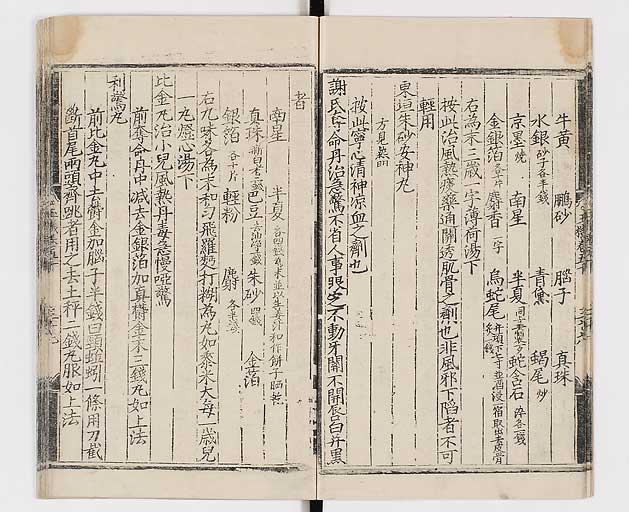 牛黃 鵬砂 腦子 真珠
水銀 砂子各半錢 青黛 蝎尾 炒
京墨 燒 南星 半夏 蛇含石
金銀箔 麝香 一字 烏蛇尾
右為末三歲一字薄荷湯下
按此治風熱痰藥通關透肌骨之劑也非風邪下陷者不可
輕用
東垣朱砂安神丸
方見熱門
按此寧心清神凉血之劑也
謝氏奪命丹治急驚不省人事眼定不動牙關不開唇白并黑
者
南星 半夏 各四錢為末並以生姜汁和作餅子晒乾
真珠 巴豆 朱砂 四錢 金箔
銀箔 各十片 輕粉 麝
右九味各為末和勻飛羅麪打糊為丸如黍米大每一歲兒
一丸燈心湯下
比金丸治小兒風熱丹毒急慢啞驚
前奪命丹中減去金銀箔加真欝金末三錢丸如上法
利驚丸
前比金丸中去欝金加腦子半錢白頸蚯蚓一條用刀截
斷首尾兩頭齊跳者用之去土秤二錢丸服如上法